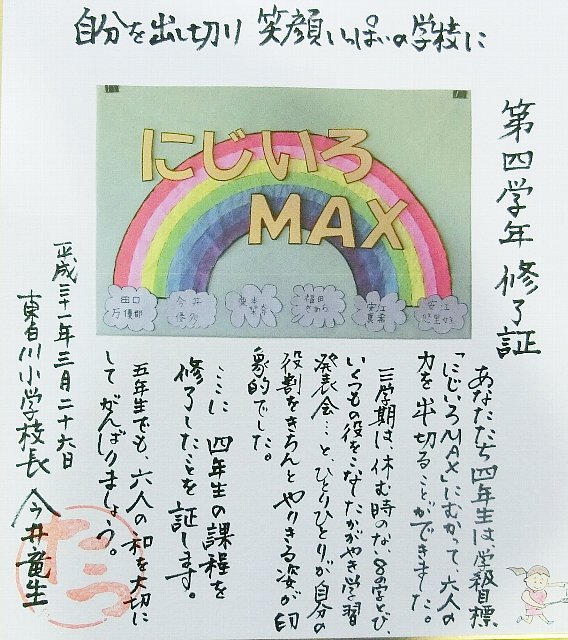 自分を出し切り 笑顔いっぱいの学校に
第四学年 修了証
にじいろ
MAX
田口
万優郁
今井
福田
きあら
安江
真希
安江
悠里姫
あなたたち四年生は、学級目標
「にじいろMAX」にむかって、六人の
力を出し切ることができました。
三学期は、休む時のない8の字とび、
いくつもの役をこなしたかがやき学習
発表会…と、ひとりひとりが自分の
役割をきちんとやりきる姿が印
象的でした。
ここに 四年生の課程を
修了したことを 証します。
五年生でも、六人の和を大切に
して がんばりましょう。
平成三十一年三月二十六日
東白川小学校長 今井竜生
たつ